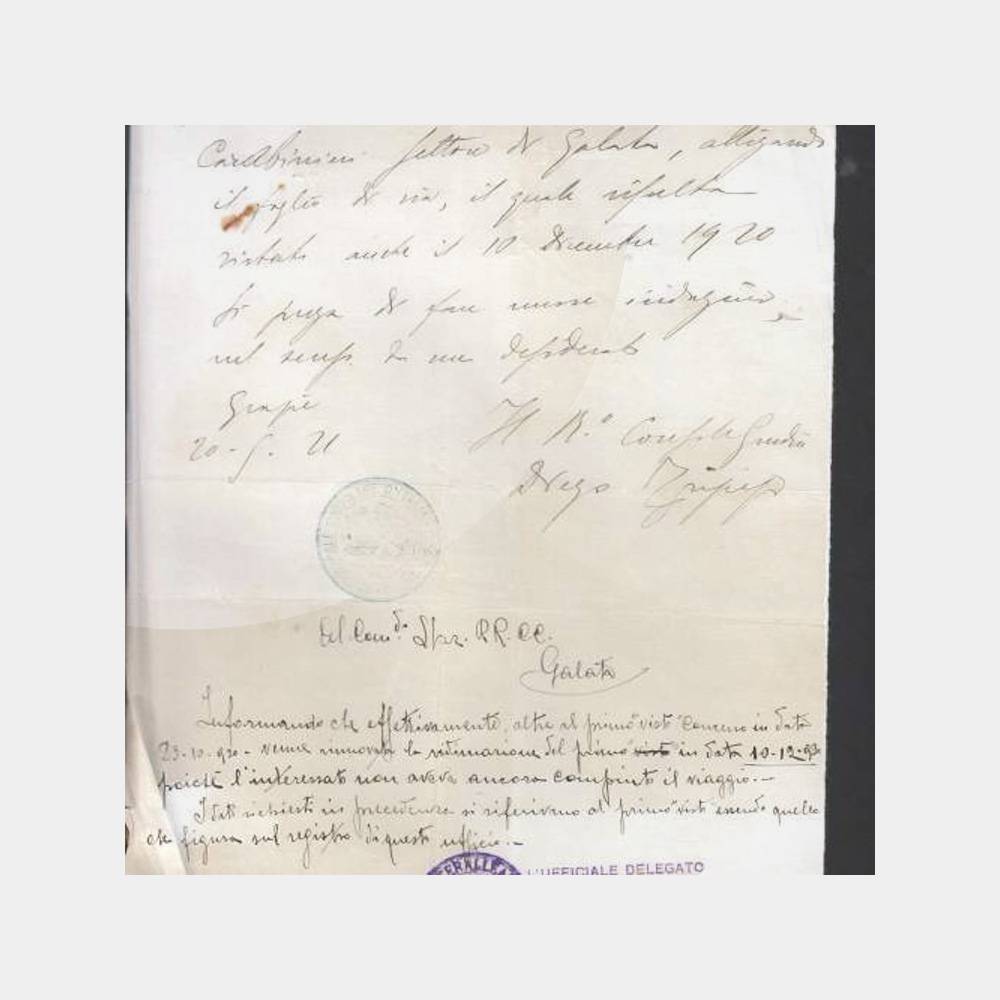 Carabinieri settore di Galata, allegando
il foglio di via, il quale risulta
vistato anche il 10 Dicembre 1920
Si prega di fare nuove indagini
nel senso da me desiderato
20-5. 21
Il R.° Console
Diego
Al Com.do R.R. CC.
Galata
Informando che effettivamente, oltre al primo visto concesso in data
23-10-920 - venne rinnovata la vidimazione del primo visto in data 10-12-920
poichè l'interessato non aveva ancora compiuto il viaggio.-
I dati richiesti in precedenza si riferivano al primo visto essendo quello
che figura sul registro di questo ufficio.-
L'UFFICIALE DELEGATO